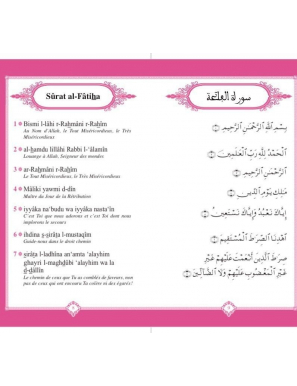 Sūrat al-Fātiḥa
1 Bismi l-lāhi r-Raḥmāni r-Raḥīm
Au Nom d'Allah, le Tout Miséricordieux, le Très
Miséricordieux
2 al-ḥamdu lillāhi Rabbi l-'ālamīn
Louange à Allah, Seigneur des mondes
3 ar-Raḥmāni r-Raḥīm
Le Tout Miséricordieux, le Très Miséricordieux
4 Māliki yawmi d-dīn
Maître du Jour de la Rétribution
5 iyyāka na'budu wa iyyāka nasta'īn
C'est Toi que nous adorons et c'est Toi dont nous
implorons le secours
6 ihdina ṣ-ṣirāṭa l-mustaqīm
Guide-nous dans le droit chemin
7 ṣirāṭa l-ladhīna an'amta 'alayhim
ghayri l-maghḍūbi 'alayhim wa la
ḍ-ḍāllīn
Le chemin de ceux que Tu as comblés de faveurs, non
pas de ceux qui ont encouru Ta colère et des égarés!
سورة الفاتحة
بِسْمِ اللَّهِ الرَّحْمَٰنِ الرَّحِيمِ
الْحَمْدُ لِلَّهِ رَبِّ الْعَالَمِينَ
الرَّحْمَٰنِ الرَّحِيمِ
مَالِكِ يَوْمِ الدِّينِ
إِيَّاكَ نَعْبُدُ وَإِيَّاكَ نَسْتَعِينُ
اهْدِنَا الصِّرَاطَ الْمُسْتَقِيمَ
صِرَاطَ الَّذِينَ أَنْعَمْتَ عَلَيْهِمْ غَيْرِ
الْمَغْضُوبِ عَلَيْهِمْ وَلَا الضَّالِّينَ